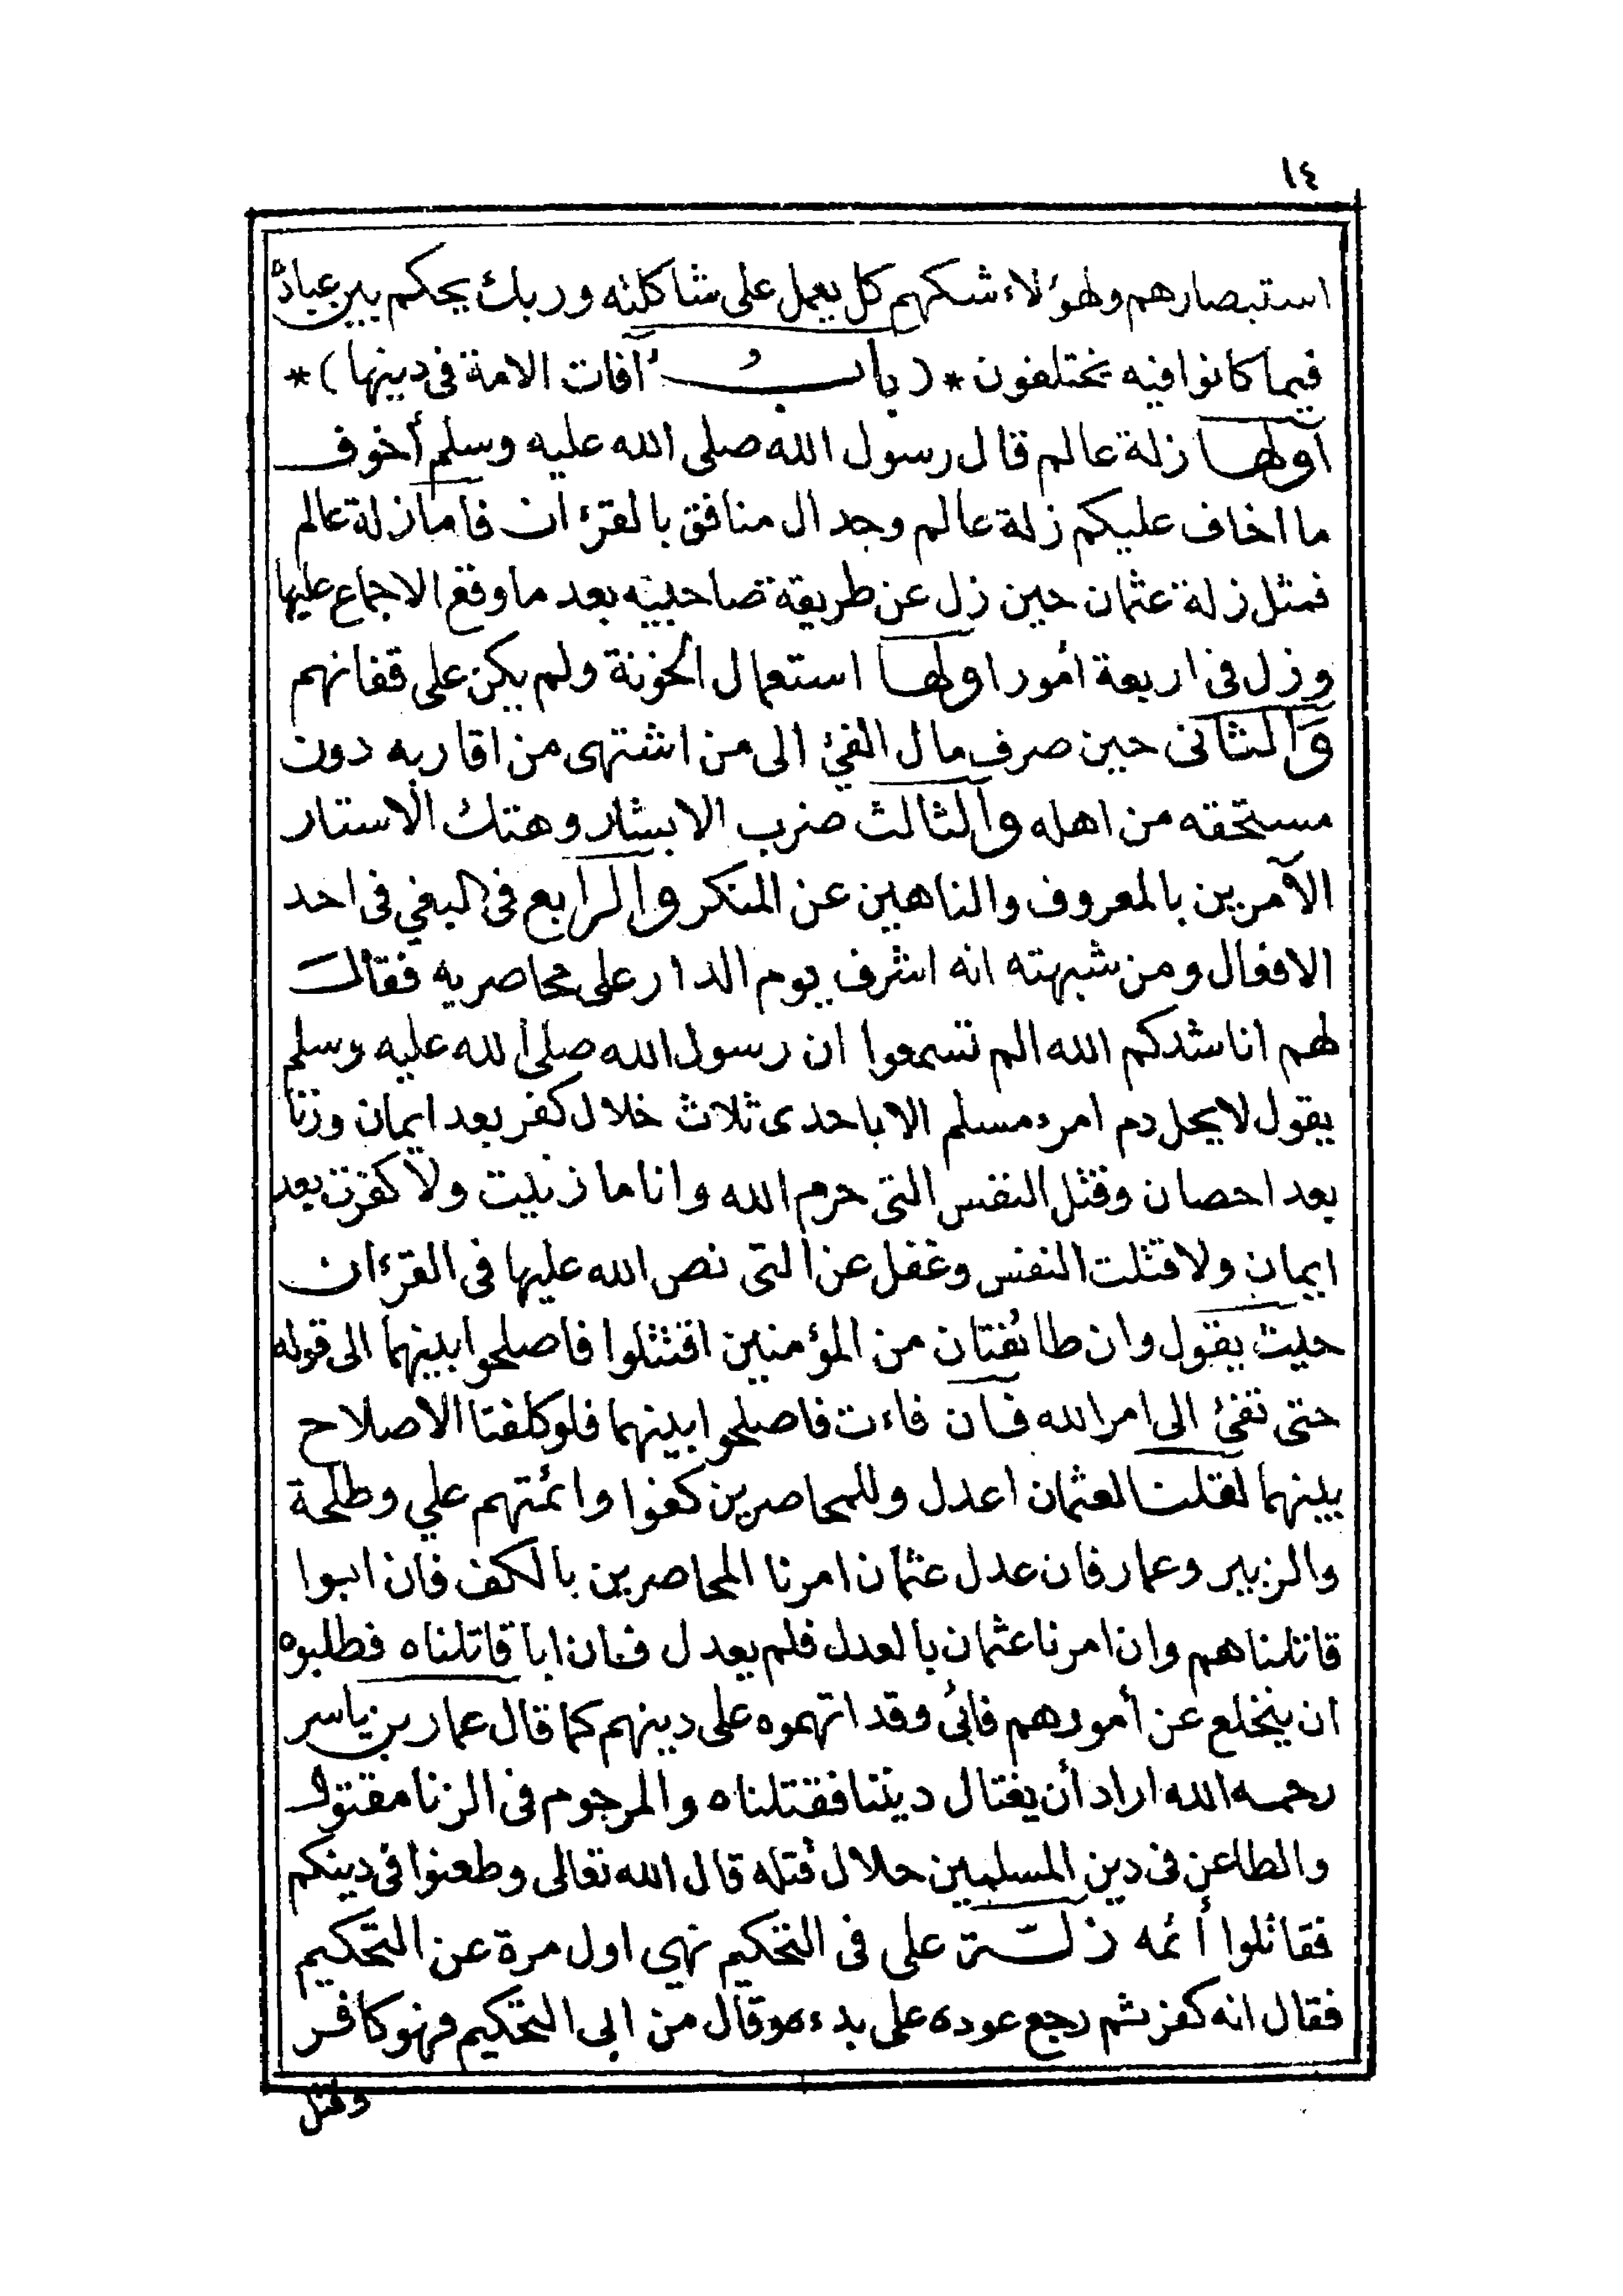 ١٤
استبصارهم ولهؤلاء شكهم كل يعمل على شاكلته وربك يحكم بين عباده
فيما كانوا فيه يختلفون * ( باب آفات الامة فى دينها ) *
أولها زلة عالم قال رسول الله صلى الله عليه وسلم أخوف
ما اخاف عليكم زلة عالم وجدال منافق بالقرءان فاما زلة عالم
فمثل زلة عثمان حين زل عن طريقة صاحبيه بعد ما وقع الاجماع عليها
وزل فى اربعة أمور اولها استعمال الخونة ولم يكن على قفانهم
والثانى حين صرف مال الفئ الى من اشتهى من اقاربه دون
مستحقه من اهله والثالث ضرب الابشار وهتك الاستار
الآمرين بالمعروف والناهين عن المنكر والرابع فى البغي فى احد
الافعال ومن شبهته انه اشرف يوم الدار على محاصريه فقال
لهم اناشدكم الله الم تسمعوا ان رسول الله صلى الله عليه وسلم
يقول لا يحل دم امرء مسلم الا باحدى ثلاث خلال كفر بعد ايمان وزنا
بعد احصان وقتل النفس التى حرم الله وانا ما زنيت ولا كفرت بعد
ايمان ولا قتلت النفس وغفل عن التى نص الله عليها فى القرءان
حيث يقول وان طائفتان من المؤمنين اقتتلوا فاصلحوا بينهما الى قوله
حتى تفئ الى امر الله فان فاءت فاصلحوا بينهما فلو كلفنا الاصلاح
بينهما لقلنا لعثمان اعدل وللمحاصرين كفوا وائمتهم علي وطلحة
والزبير وعمار فان عدل عثمان امرنا المحاصرين بالكف فان ابوا
قاتلناهم وان امرنا عثمان بالعدل فلم يعدل فان ابا قاتلناه فطلبوه
ان ينخلع عن أمورهم فابى وقد اتهموه على دينهم كما قال عمار بن ياسر
رحمه الله اراد أن يغتال ديننا فقتلناه والمرجوم فى الزنا مقتول
والطاعن فى دين المسلمين حلال قتله قال الله تعالى وطعنوا فى دينكم
فقاتلوا أئمه زلة على فى التحكيم نهى اول مرة عن التحكيم
فقال انه كفر ثم رجع عوده على بدءه وقال من ابى التحكيم فهو كافر
وقتل